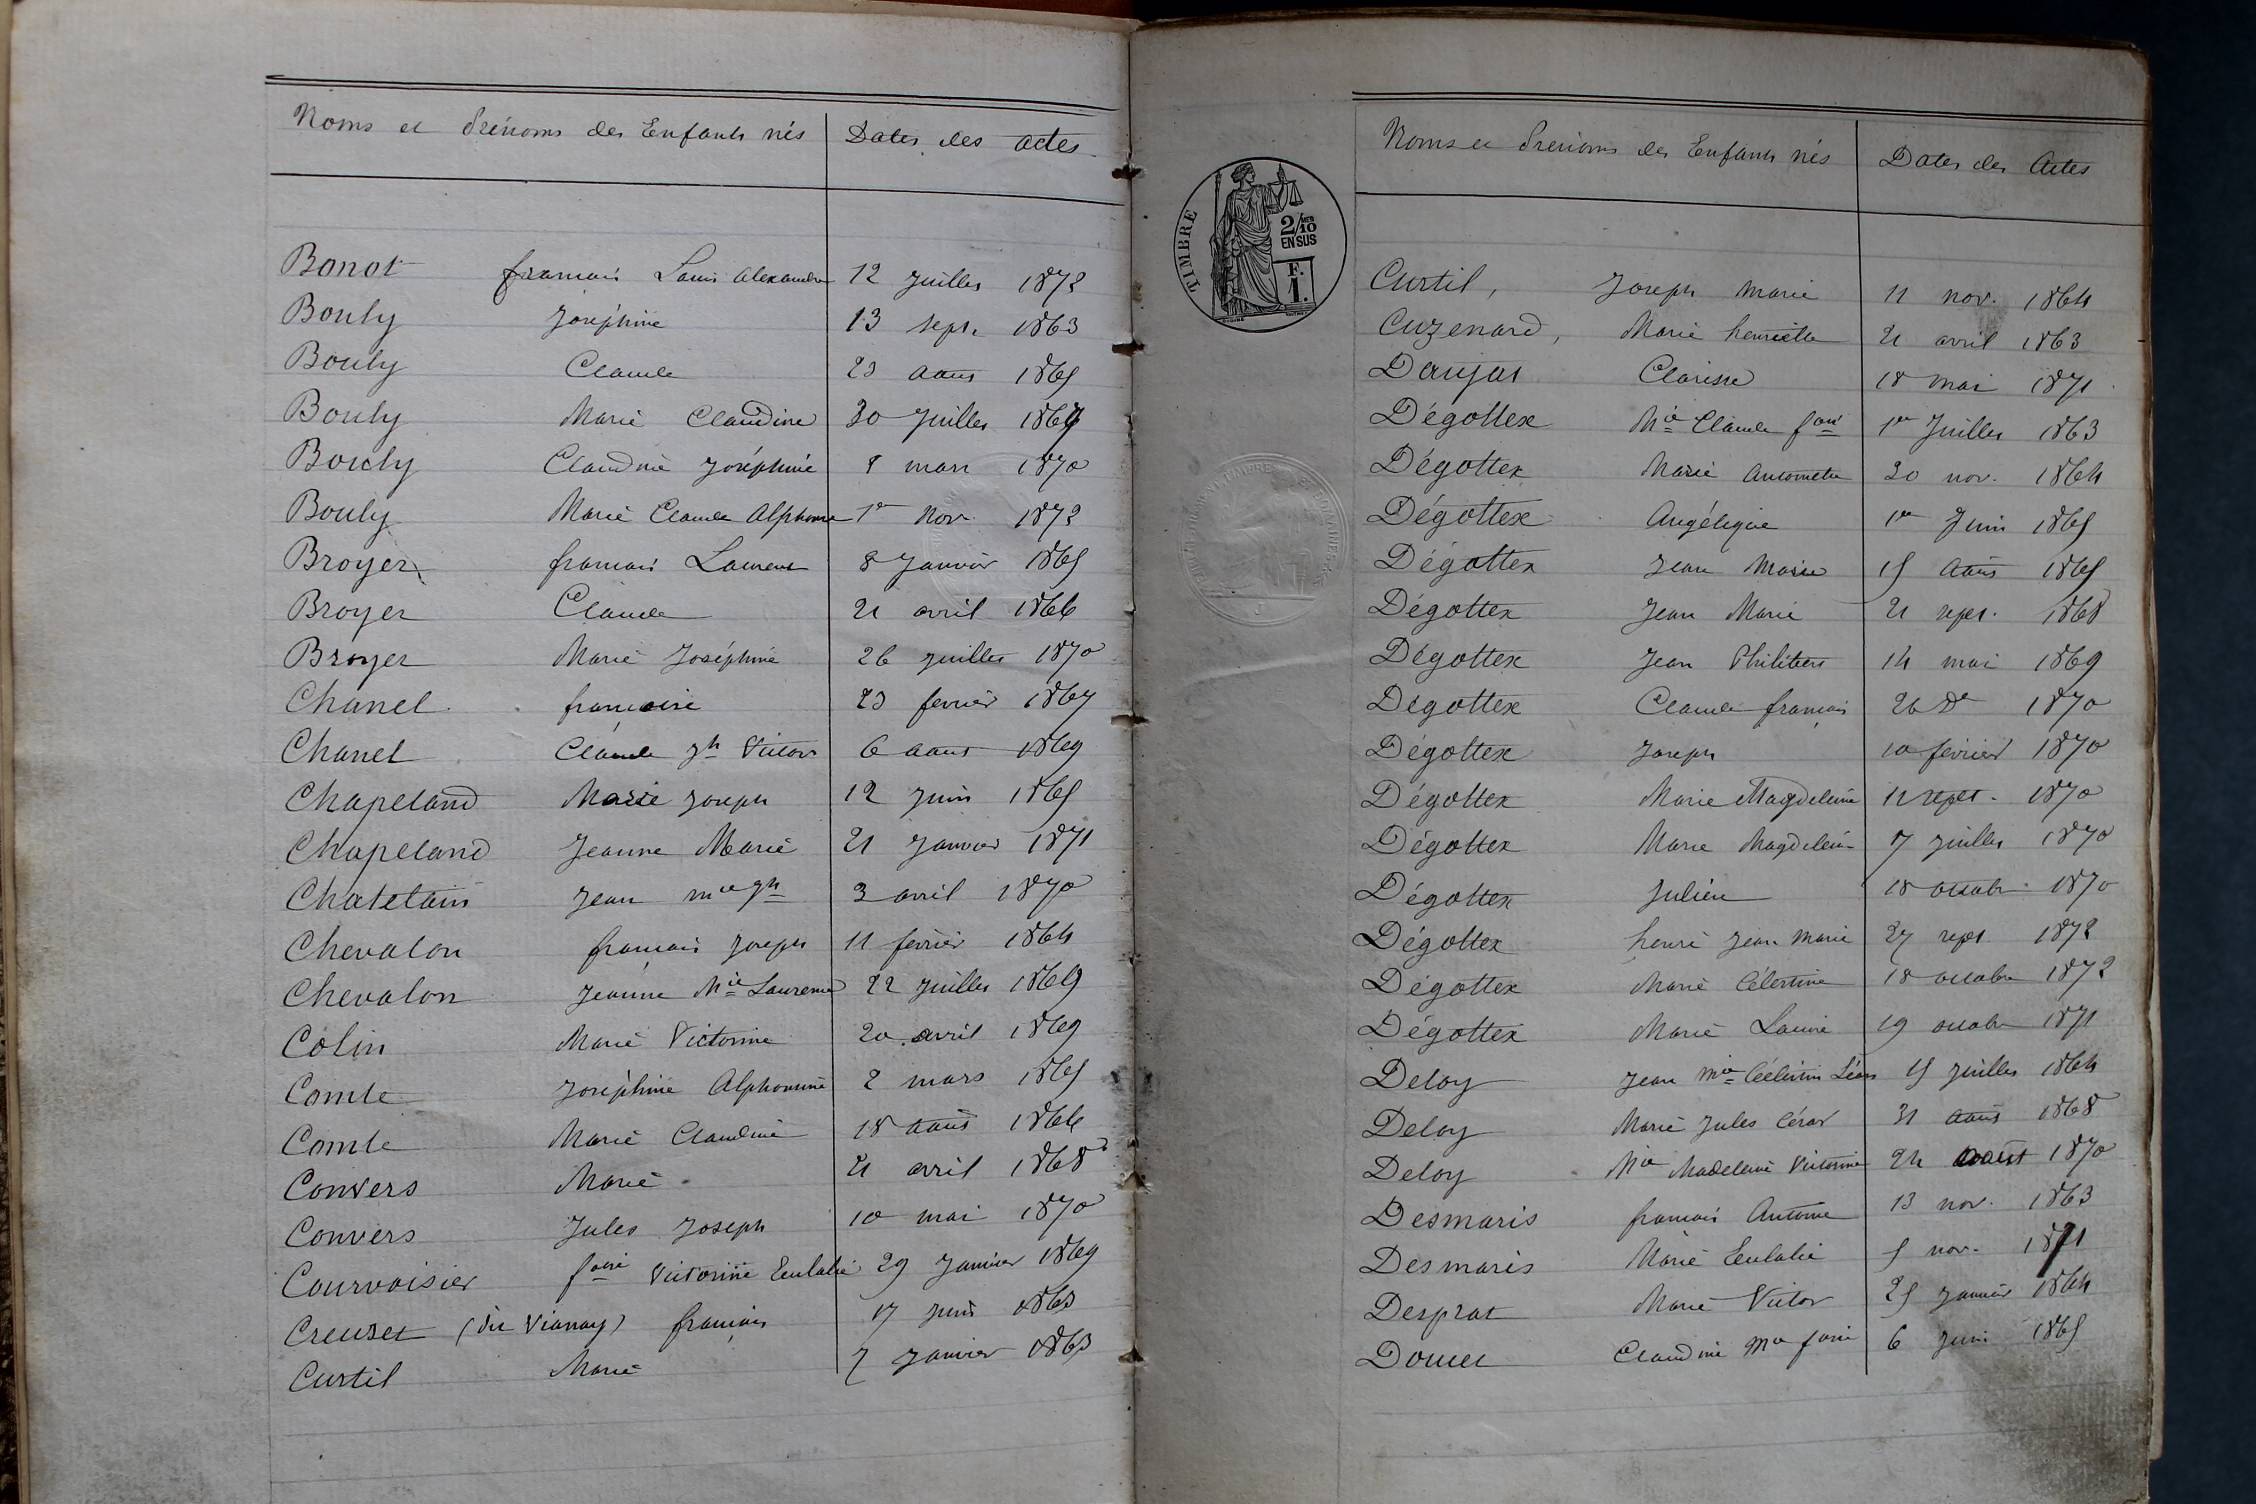 Noms et Prénoms des Enfants nés Dates des actes
Bonot francois Louis Alexandre 12 Juillet 1872
Bouly Joséphine 13 sept. 1863
Bouly Claude 23 aout 1865
Bouly Marie Claudine 30 Juillet 1867
Bouly Claudine Joséphine 8 mars 1870
Bouly Marie Claude Alphonse 1er Nov. 1872
Broyer francois Laurent 8 Janvier 1865
Broyer Claude 21 avril 1866
Broyer Marie Joséphine 26 juillet 1870
Chanel francoise 23 fevrier 1867
Chanel Claude Jh Victor 6 aout 1869
Chapeland Marie Joseph 12 juin 1865
Chapeland Jeanne Marie 21 Janvier 1871
Chatelain Jean mie Jh 3 avril 1870
Chevalon francois Joseph 11 fevrier 1864
Chevalon Jeanne Mie Laurence 22 Juillet 1869
Colin Marie Victorine 20 avril 1869
Comte Joséphine Alphonsine 2 mars 1865
Comte Marie Claudine 18 aout 1866
Convers Marie 21 avril 1868
Convers Jules Joseph 10 mai 1870
Courvoisier foise Victorine Eulalie 29 Janvier 1869
Creuset (dit Vianay) francois 17 juin 1863
Curtil Marie 7 Janvier 1863
TIMBRE
2/10 EN SUS
F. 1.
Noms et Prenoms des Enfants nés Dates des Actes
Curtil, Joseph Marie 11 nov. 1864
Cuzenard, Marie henriette 21 avril 1863
Daujat Clarisse 18 mai 1871
Dégottex Mie Claude fois 1er Juillet 1863
Dégottex Marie Antoinette 30 nov. 1864
Dégottex Angélique 1er Juin 1865
Dégottex Jean Marie 15 Août 1865
Dégottex Jean Marie 21 sept. 1868
Dégottex Jean Philibert 14 mai 1869
Dégottex Claude francois 26 De 1870
Dégottex Joseph 10 février 1870
Dégottex Marie Magdeleine 11 sept. 1870
Dégottex Marie Magdeleine 7 juillet 1870
Dégottex Julien 18 octobre 1870
Dégottex henri Jean Marie 27 sept 1872
Dégottex Marie Célestine 18 octobre 1872
Dégottex Marie Louise 19 octobre 1871
Deloy Jean Mie Célestin Léon 15 juillet 1864
Deloy Marie Jules César 31 août 1868
Deloy Mie Madeleine Victorine 24 aoust 1870
Desmaris francois Antoine 13 nov. 1863
Desmaris Marie Eulalie 5 nov. 1871
Desprat Marie Victor 25 Janvier 1864
Doucet Claudine Mie foise 6 Juin 1865